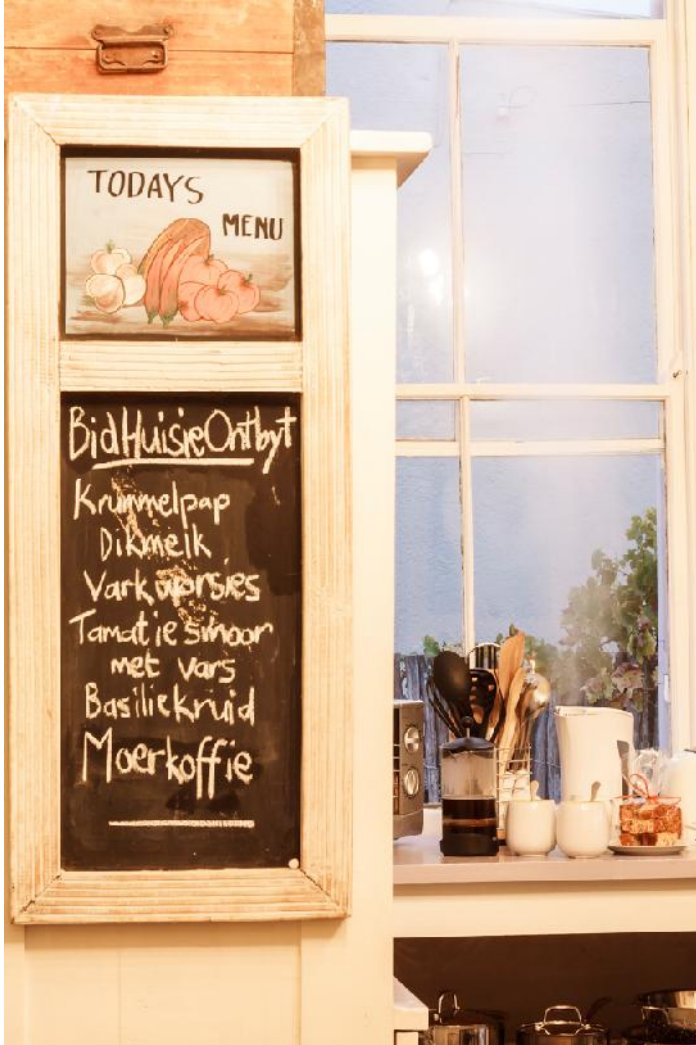 TODAYS
MENU
BidHuisieOntbyt
Krummelpap
Dikmelk
Varkworsies
Tamatie smoor
met vars
Basiliekruid
Moerkoffie